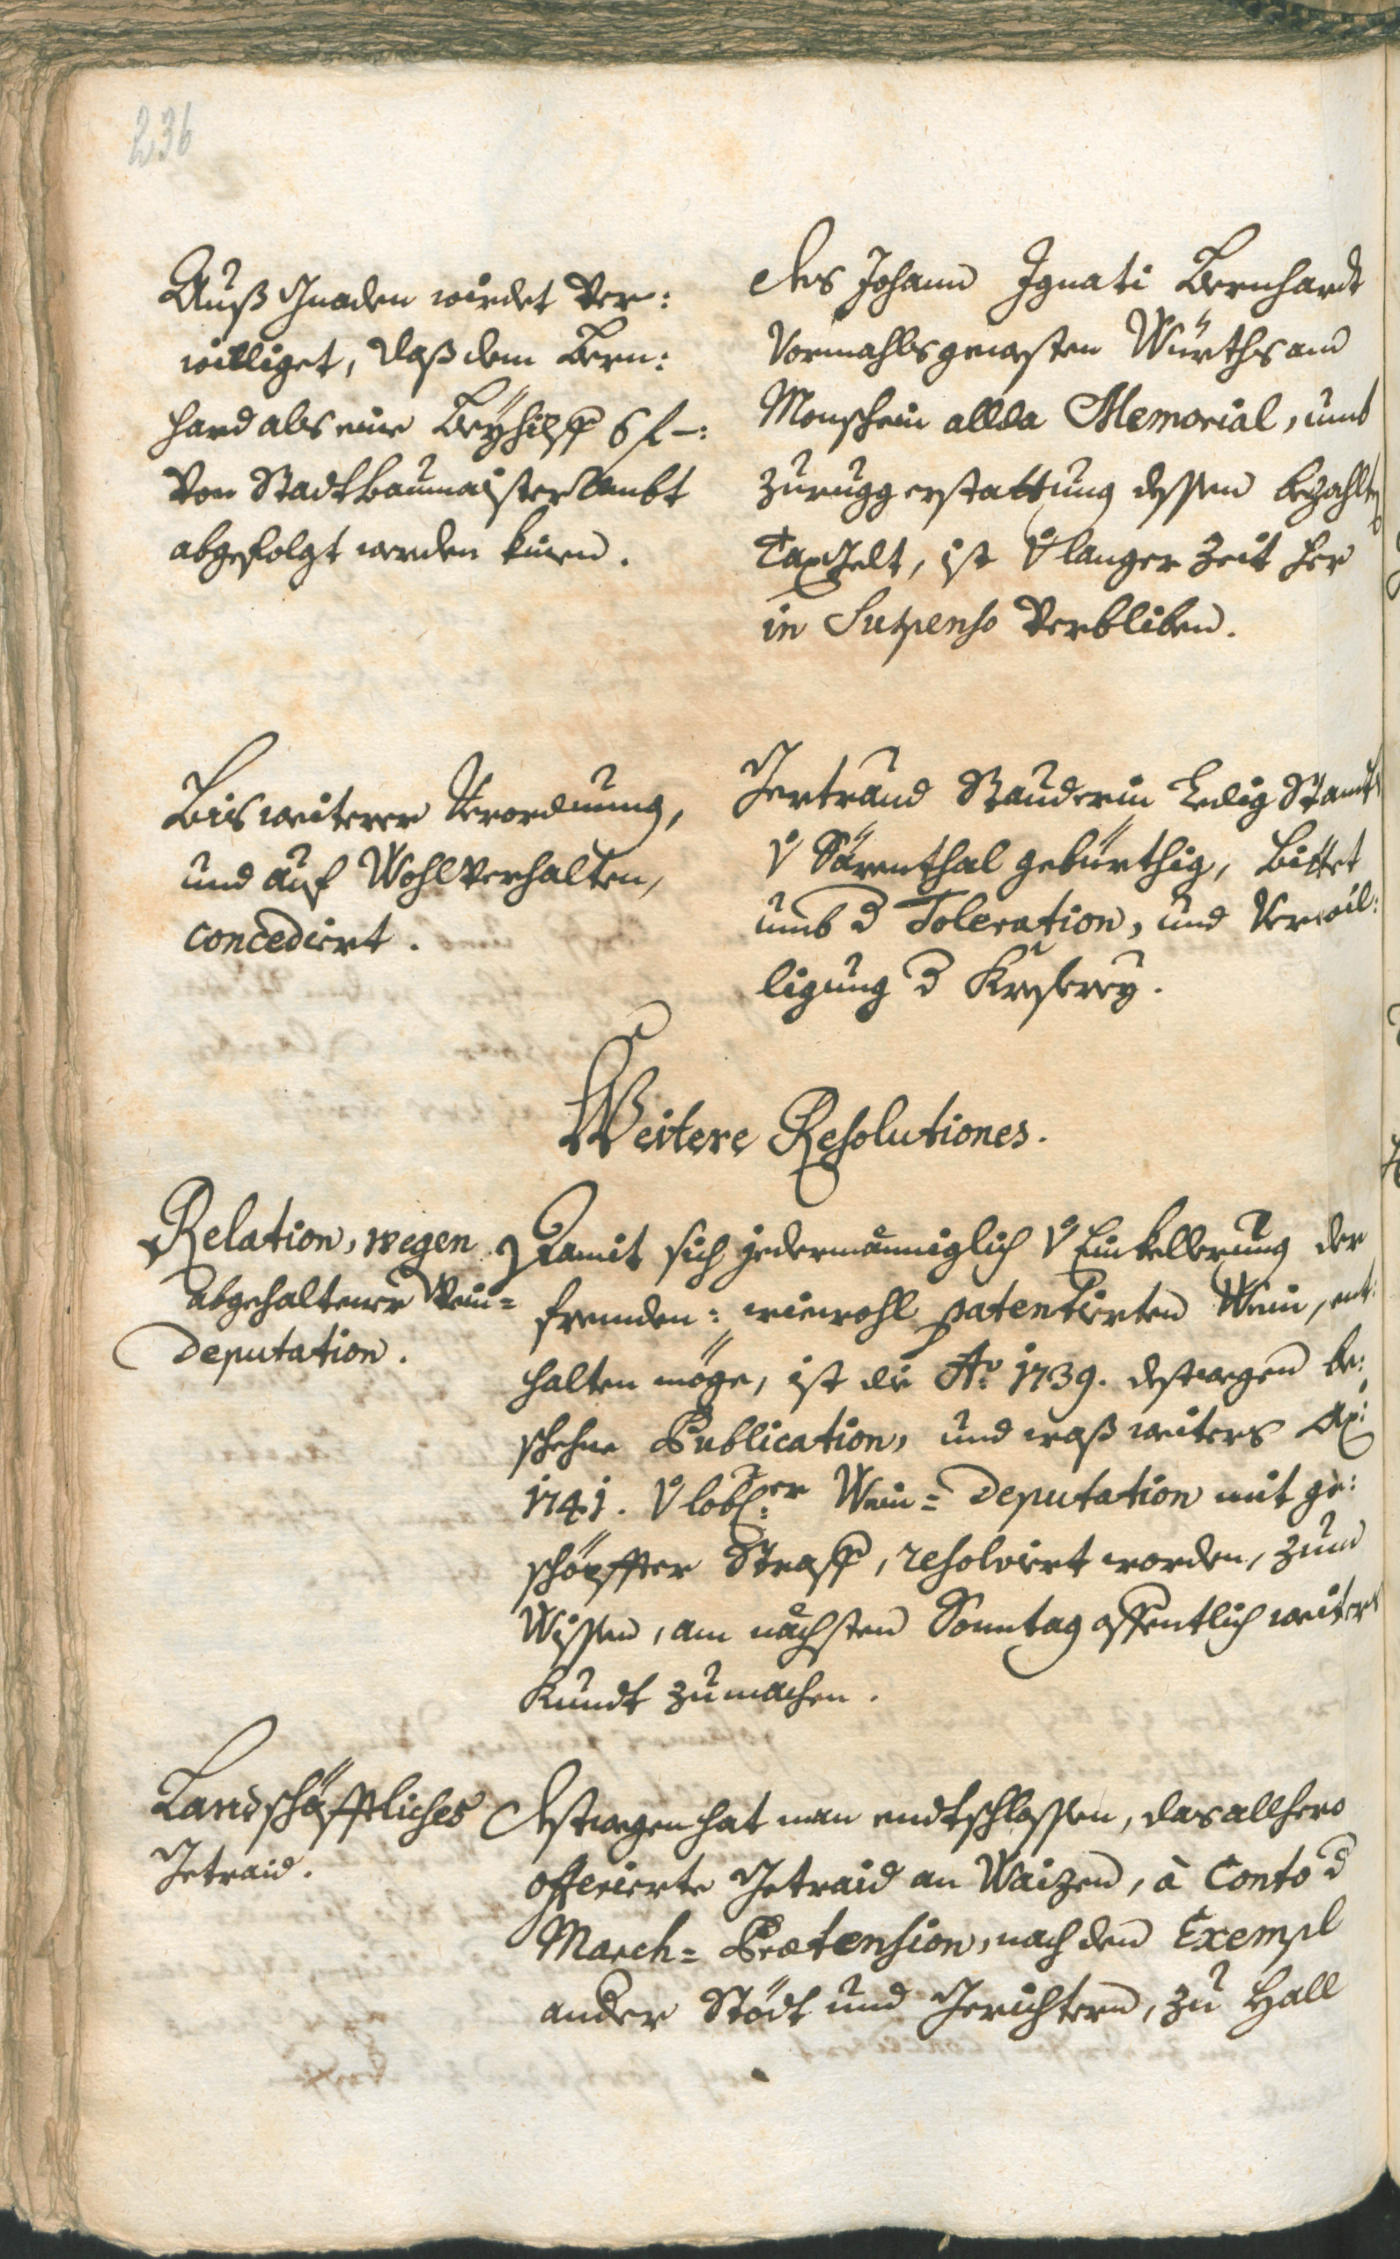 236
Auß Gnaden wirdet ver:
williget, daß dem Bern:
hard als eine Beyhilff 6 f -:
von Stadtbaumaisterambt
abgefolgt werden künen.
des Johann Ignati Bernhardt
vormahls gewesten Würths am
Monschein allda Memorial, umb
zurugg erstattung dessen bezahlten
Taxgelt, ist v langer Zeit her
in Suspenso verbliben.
Bis weiterer Verordnung,
und auf Wohlverhalten,
concediert.
Gertraud Stauderin Ledig Stants
v Särenthal gebürthig, bittet
umb d Toleration, und Verwil:
ligung d Kreserey.
Weitere Resolutiones.
Relation, wegen
abgehaltener Wein=
Deputation.
Damit sich jedermänniglich v Einkellerung der
fremden: wiewohl patentierten Wein, ent:
halten möge, ist die Aº 1739. destwegen be:
schehne Publication, und waß weiters
1741. v lobl:er Wein= Deputation mit ge:
schöpffter Straff, resolviert worden, zum
Wissen, am nächsten Sonntag offentlich weiters
Kundt zumachen.
Landschäfftliches
Getraid.
Destwegen hat man endtschlossen, das allhero
offerierte Getraid an Waizen, à Conto d
March= Prætension, nach den Exempl
ander Stödt und Gerichtern, zu Hall